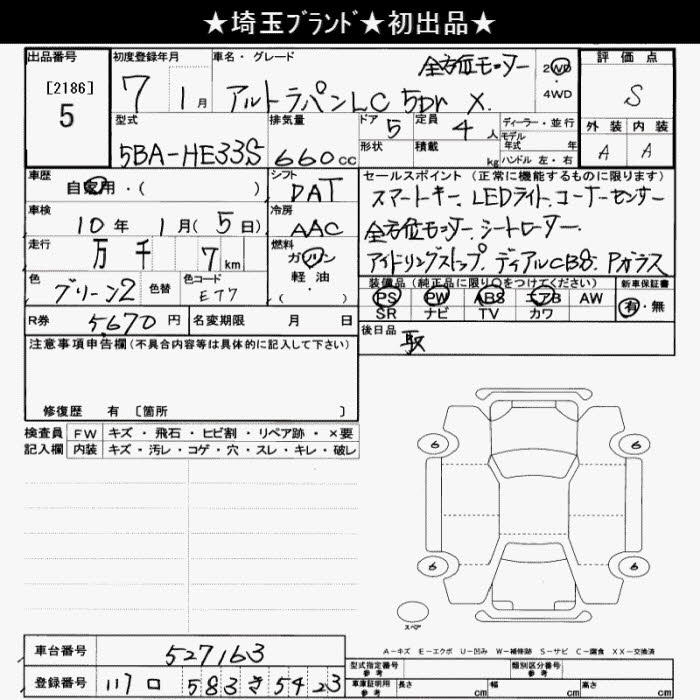 ★埼玉ﾌﾞﾗﾝﾄﾞ★初出品★
出品番号
[2186]
5
初度登録年月
7 1月
車名・グレード
全方位モニター
アルトラパンLC 5Dr X.
2WD
4WD
評価点
S
外装 内装
A A
型式
5BA-HE33S
排気量
660cc
ドア 5
形状
定員 4人
積載 kg
ディーラー・並行
モデル年式 年式
ハンドル 左・右
車歴
自家用・( )
シフト
DAT
車検
10年 1月(5日)
冷房
AAC
走行
万 千 7km
燃料
ガソリン
・
軽油
( )
色
グリーン2
色替
色コード
E77
セールスポイント (正常に機能するものに限ります)
スマートキー. LEDライト. コーナーセンサー
全方位モニター. シートヒーター.
アイドリングストップ. ディアルCBS. Pガラス
装備品(純正品に限り○をつけてください)
PS PW ABS エアB AW
SR ナビ TV カワ
新車保証書
有・無
R券 5,670円
名変期限 月 日
後日品
取
注意事項申告欄(不具合内容等は具体的に記入して下さい)
修復歴 有 〔箇所 〕
検査員記入欄
FW キズ・飛石・ヒビ割・リペア跡・×要
内装 キズ・汚レ・コゲ・穴・スレ・キレ・破レ
6 6
6 6
スペア
A-キズ E-エクボ U-凹み W-補修跡 S-サビ C-腐食 XX-交換済
車台番号 527163
登録番号 117 ロ 583 き 5423
型式指定番号 参考
類別区分番号 参考
車庫証明用 参考 長さ cm 幅 cm 高さ cm